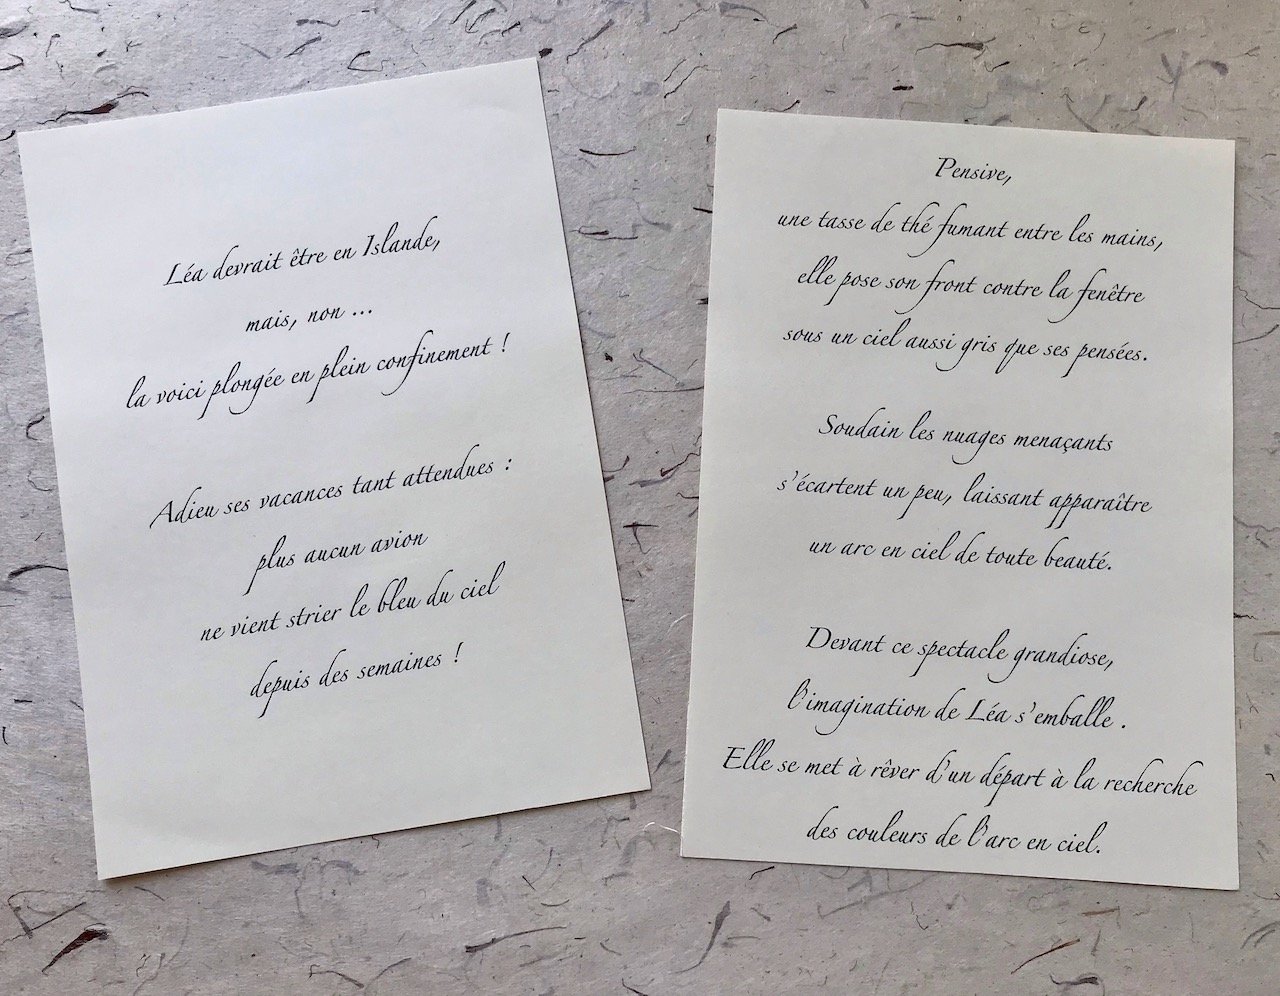 Léa devrait être en Islande,
mais, non ...
la voici plongée en plein confinement !
Adieu ses vacances tant attendues :
plus aucun avion
ne vient strier le bleu du ciel
depuis des semaines !
Pensive,
une tasse de thé fumant entre les mains,
elle pose son front contre la fenêtre
sous un ciel aussi gris que ses pensées.
Soudain les nuages menaçants
s'écartent un peu, laissant apparaître
un arc en ciel de toute beauté.
Devant ce spectacle grandiose,
l'imagination de Léa s'emballe .
Elle se met à rêver d'un départ à la recherche
des couleurs de l'arc en ciel.